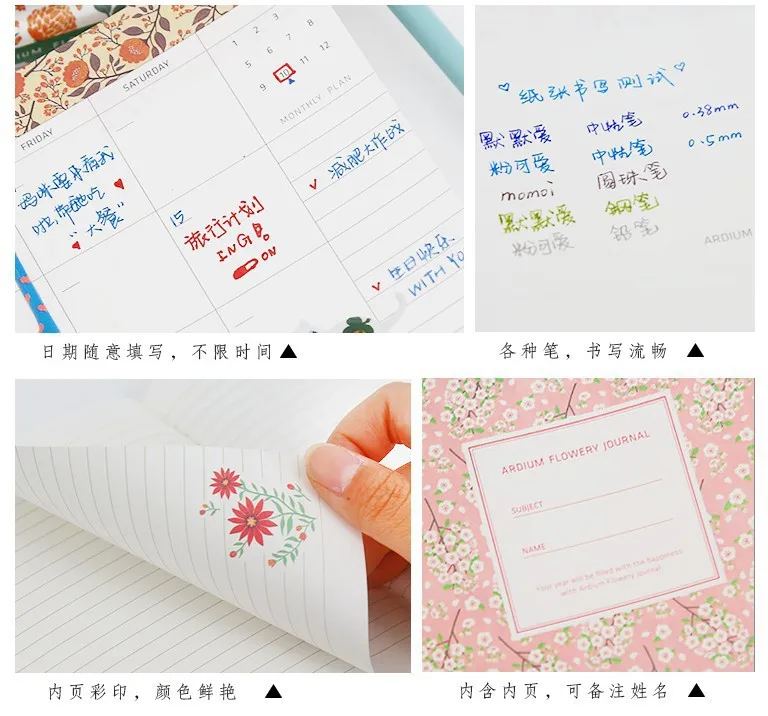 FRIDAY
SATURDAY
1 2 3 4
5 6 7 8
9 10 11 12
MONTHLY PLAN
减肥大作战
大餐
15
旅行计划
ING!
ON
生日快乐
WITH YO
日期随意填写，不限时间▲
纸张书写测试
默默爱 中性笔 0.38mm
粉可爱 中性笔 0.5mm
momoi 圆珠笔
默默爱 钢笔
粉可爱 铅笔
ARDIUM
各种笔，书写流畅 ▲
内页彩印，颜色鲜艳 ▲
ARDIUM FLOWERY JOURNAL
SUBJECT
NAME
Your year will be filled with the happiness
with Ardium Flowery Journal
内含内页，可备注姓名 ▲